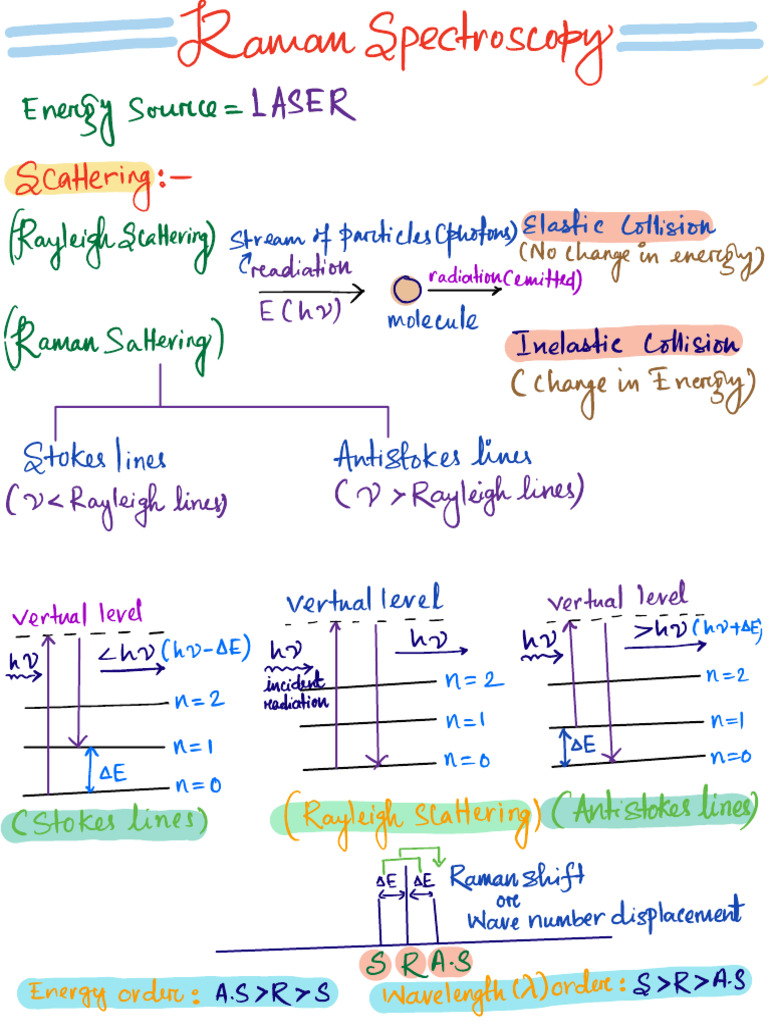 Raman Spectroscopy
Energy Source = LASER
Scattering :-
(Rayleigh Scattering) Stream of particles (photons) Elastic Collision
readiation (No change in energy)
radiation (emitted)
E (hν)
molecule
(Raman Sattering) Inelastic Collision
(Change in Energy)
Stokes lines Antistokes lines
(ν < Rayleigh lines) (ν > Rayleigh lines)
vertual level
hν <hν (hν-ΔE)
n=2
n=1
ΔE
n=0
(Stokes lines)
vertual level
hν hν
incident
readiation
n=2
n=1
n=0
(Rayleigh Scattering)
vertual level
hν >hν (hν+ΔE)
n=2
n=1
ΔE
n=0
(Antistokes lines)
ΔE ΔE Raman shift
ore
Wave number displacement
S R A.S
Energy order : A.S>R>S
Wavelength (λ) order : S>R>A.S